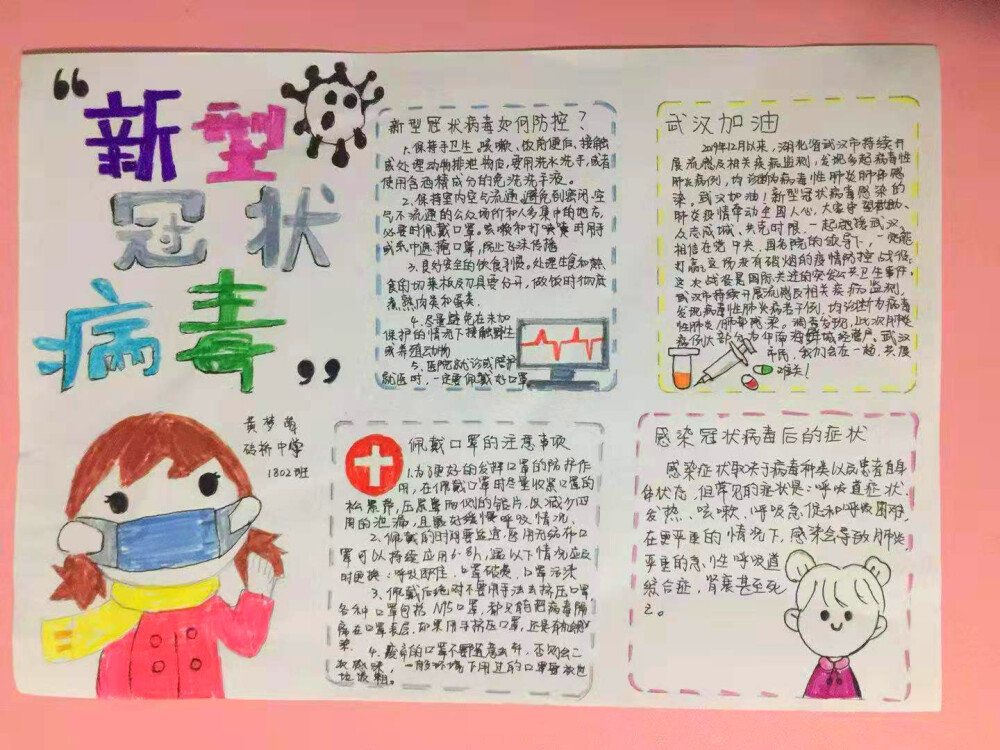 “新型
冠状
病毒”
黄梦
砖桥中学
1802班
新型冠状病毒如何防控？
1.保持手卫生。咳嗽、饭前便后、接触
或处理动物排泄物后，要用流水洗手，或者
使用含酒精成分的免洗洗手液。
2.保持室内空气流通。避免到封闭、空
气不流通的公众场所和人多集中的地方，
必要时佩戴口罩。咳嗽和打喷嚏时用手
或纸巾遮掩口鼻，防止飞沫传播
3.良好安全的饮食习惯。处理生食和熟
食的切菜板及刀具要分开，做饭时彻底
煮熟肉类和蛋类.
4.尽量避免在未加
保护的情况下接触野生
或养殖动物
5.医院就诊或陪护
就医时，一定要佩戴好口罩
武汉加油
2019年12月以来，湖北省武汉市持续开
展流感及相关疾病监测，发现多起病毒性
肺炎病例，均诊断为病毒性肺炎/肺部感
染。武汉加油！新型冠状病毒感染的
肺炎疫情牵动全国人心，大家守望相助、
众志成城、共克时限，一起迎接武汉，
相信在党中央、国务院的领导下，一定能
打赢这场没有硝烟的疫情防控战役。
这次战役是国际关注的突发公共卫生事件，
武汉市持续开展流感及相关疾病监测，
发现病毒性肺炎病者于例，均诊断为病毒
性肺炎/肺部感染。调查发现，此次肺炎
病例大部分为华南海鲜城经营户。武汉
市民，我们会在一起，共度
难关！
佩戴口罩的注意事项
1.为了更好的发挥口罩的防护作
用，在佩戴口罩时尽量收紧口罩的
松紧带，压紧鼻两侧的铝片，以减少四
周的泄漏，且最好缓慢呼吸情况.
2.佩戴的时间要适度，医用无纺布口
罩可以持续应用6-8小，遇以下情况应及
时更换：呼吸阻性、口罩破损、口罩污染
3.佩戴后绝对不要用手法去挤压口罩，
各种口罩包括N95口罩，都只能把病毒隔
离在口罩表层，如果用手挤压口罩，还是有机会感
染.
4.戴前的口罩不要随意丢弃，否则会二
次感染，一般环境下用过的口罩要放进
垃圾箱。
感染冠状病毒后的症状
感染症状取决于病毒种类以及患者自
身体状态，但常见的症状是：呼吸道症状、
发热、咳嗽、呼吸急促和呼吸困难，
在更严重的情况下，感染会导致肺炎，
严重的急性呼吸道
综合症，肾衰甚至死
亡。